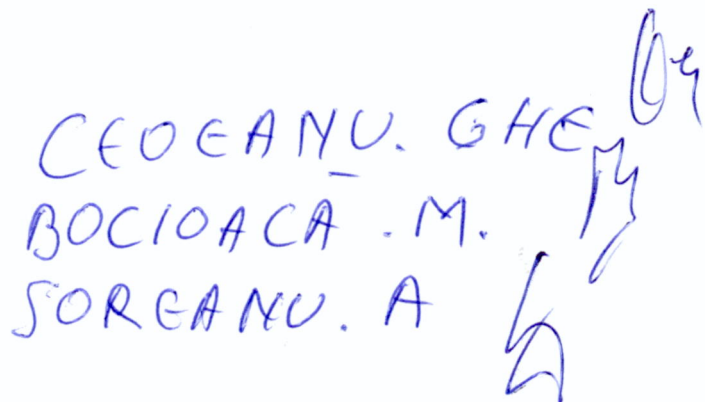 CEOEANU. GHE
BOCIOACĂ. M.
SOREANU. A